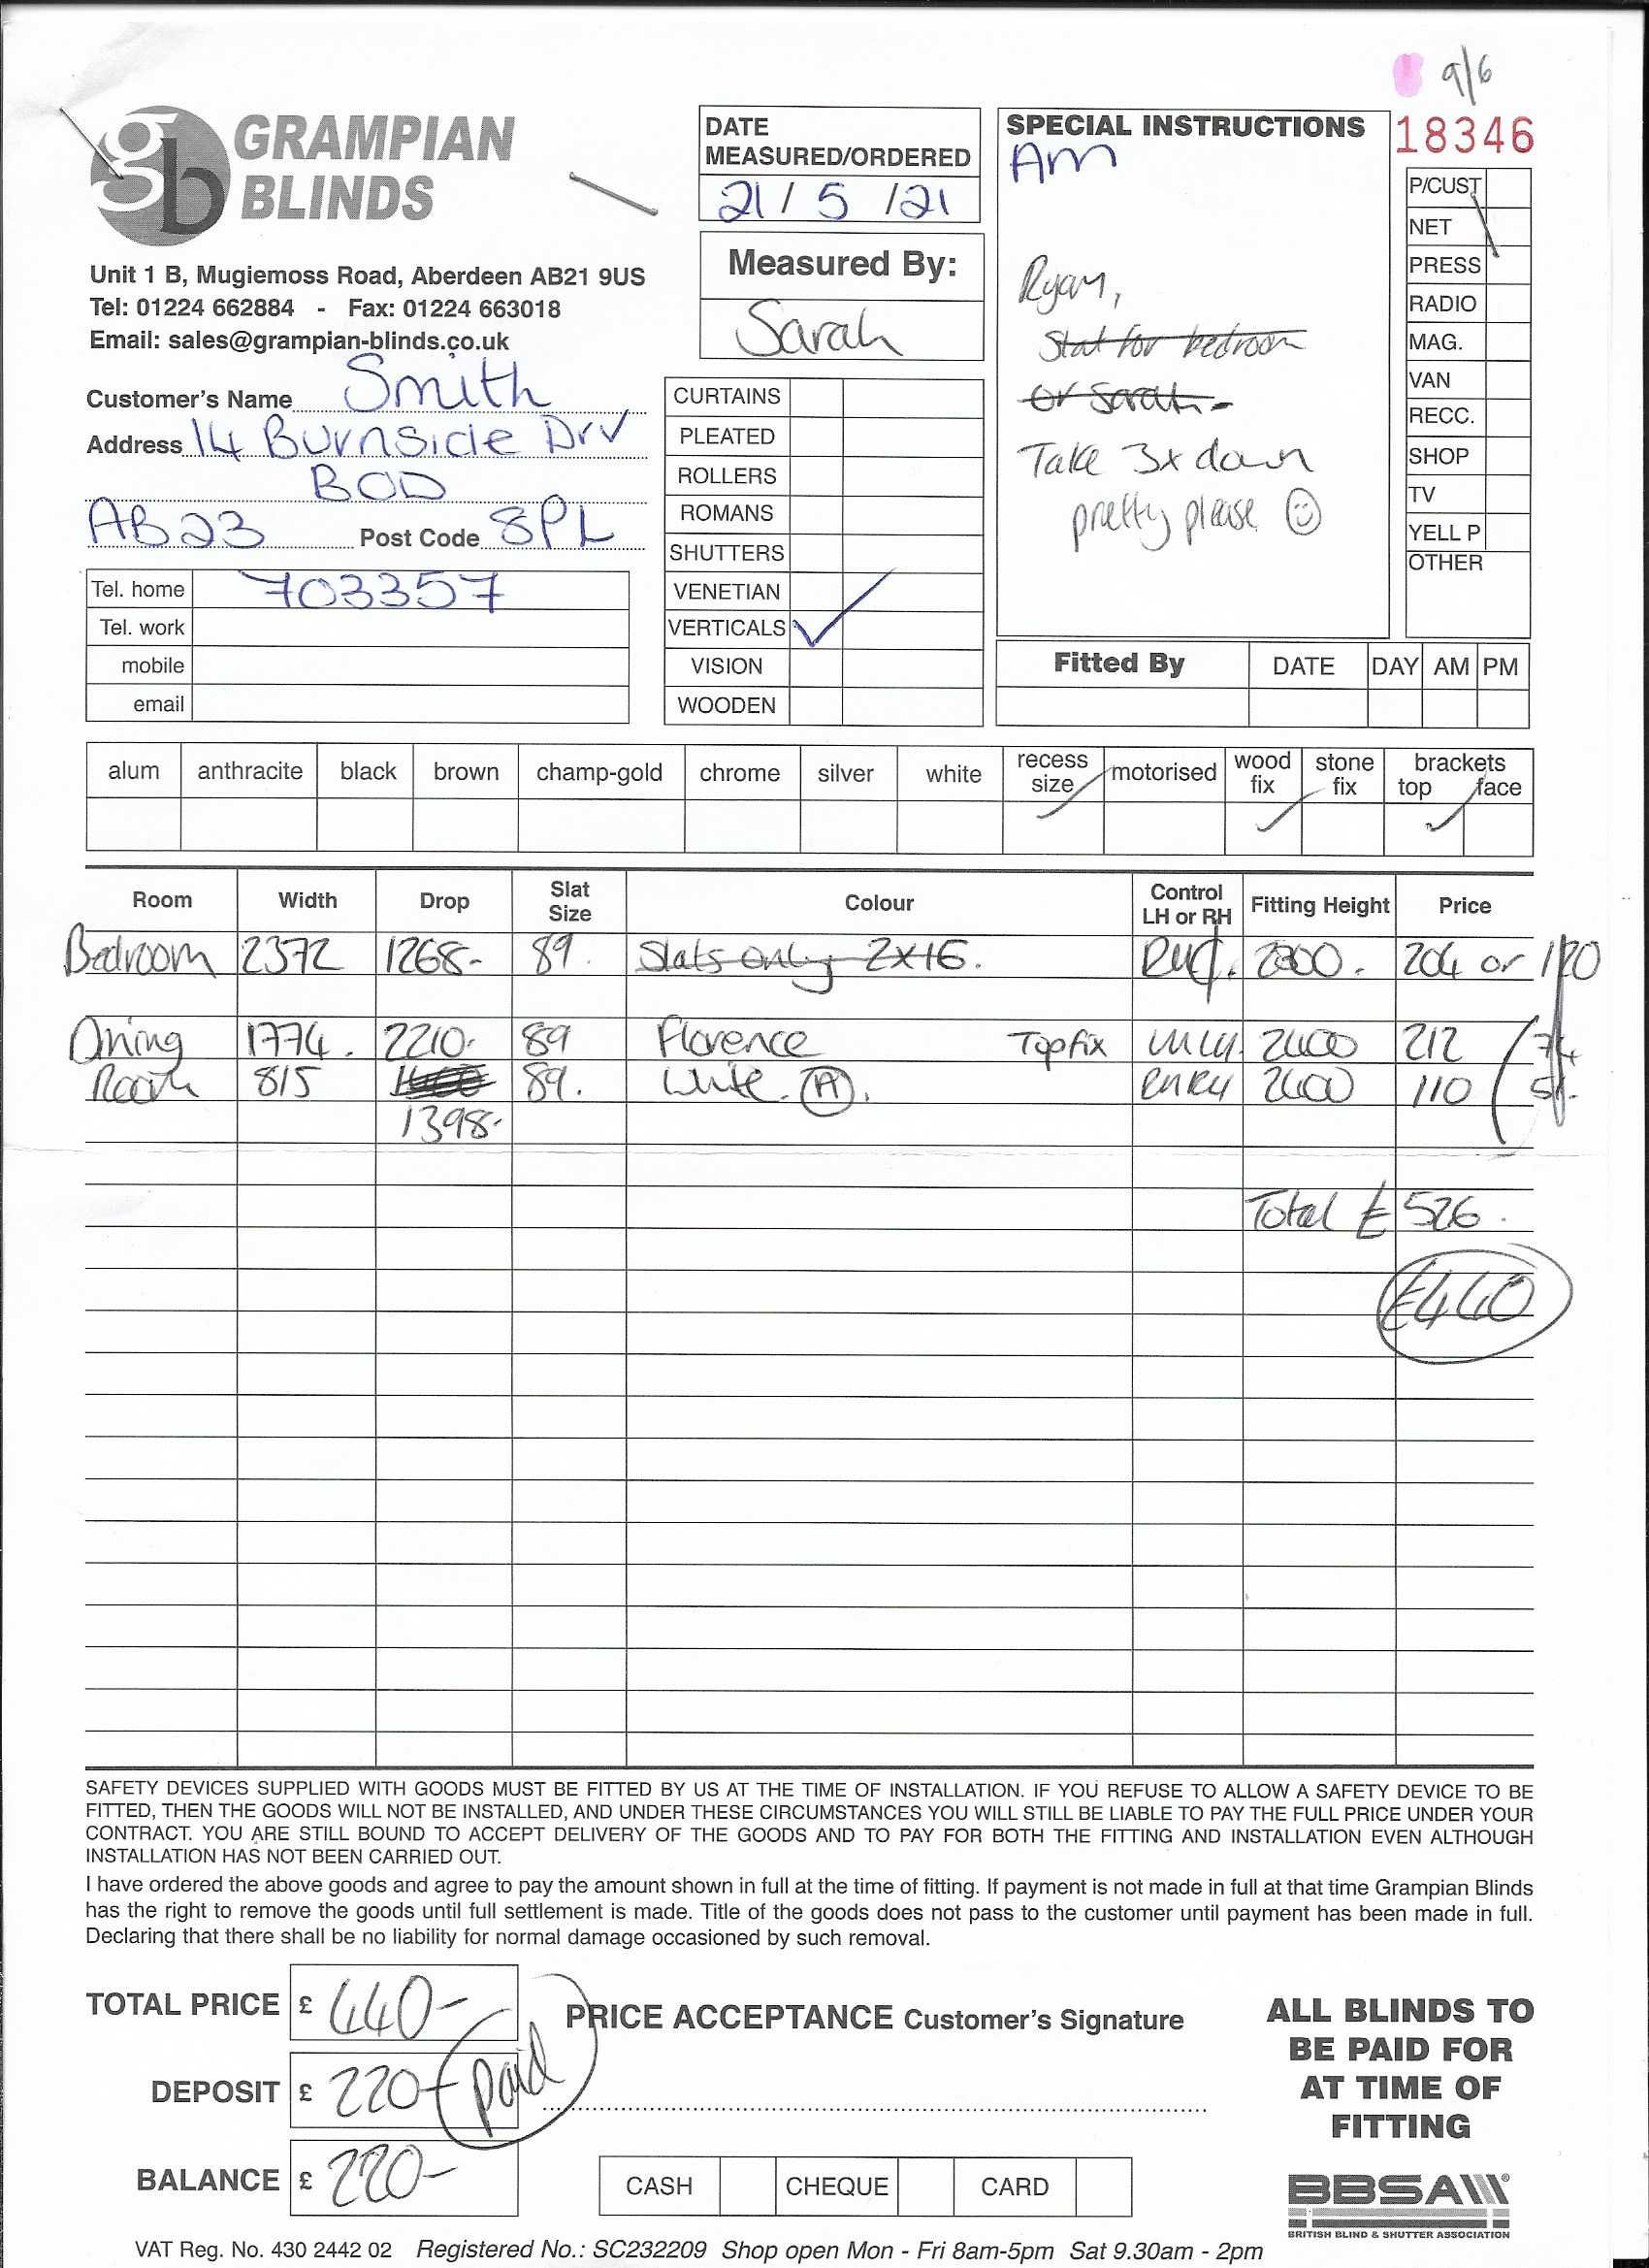 9/6
GRAMPIAN
BLINDS
Unit 1 B, Mugiemoss Road, Aberdeen AB21 9US
Tel: 01224 662884 - Fax: 01224 663018
Email: sales@grampian-blinds.co.uk
Customer's Name Smith
Address 14 Burnside Drv
BOD
AB23 Post Code 8PL
Tel. home 703357
Tel. work
mobile
email
DATE
MEASURED/ORDERED
21/5/21
Measured By:
Sarah
CURTAINS
PLEATED
ROLLERS
ROMANS
SHUTTERS
VENETIAN
VERTICALS ✓
VISION
WOODEN
SPECIAL INSTRUCTIONS
Am
Ryan,
Slat for bedroom
or Sarah-
Take 3x down
pretty please ☺
18346
P/CUST
NET
PRESS
RADIO
MAG.
VAN
RECC.
SHOP
TV
YELL P
OTHER
Fitted By DATE DAY AM PM
alum anthracite black brown champ-gold chrome silver white recess size motorised wood fix stone fix brackets top face
✓ ✓ ✓
Room Width Drop Slat Size Colour Control LH or RH Fitting Height Price
Bedroom 2372 1268- 89. Slats only 2x16. 2300. 204 or 120
Dining 1774. 2210- 89 Florence Topfix 2400 212
Room 815 89. White. (A). 2400 110
1398-
Total £ 526.
£440
SAFETY DEVICES SUPPLIED WITH GOODS MUST BE FITTED BY US AT THE TIME OF INSTALLATION. IF YOU REFUSE TO ALLOW A SAFETY DEVICE TO BE
FITTED, THEN THE GOODS WILL NOT BE INSTALLED, AND UNDER THESE CIRCUMSTANCES YOU WILL STILL BE LIABLE TO PAY THE FULL PRICE UNDER YOUR
CONTRACT. YOU ARE STILL BOUND TO ACCEPT DELIVERY OF THE GOODS AND TO PAY FOR BOTH THE FITTING AND INSTALLATION EVEN ALTHOUGH
INSTALLATION HAS NOT BEEN CARRIED OUT.
I have ordered the above goods and agree to pay the amount shown in full at the time of fitting. If payment is not made in full at that time Grampian Blinds
has the right to remove the goods until full settlement is made. Title of the goods does not pass to the customer until payment has been made in full.
Declaring that there shall be no liability for normal damage occasioned by such removal.
TOTAL PRICE £ 440-
DEPOSIT £ 220- paid
BALANCE £ 220-
PRICE ACCEPTANCE Customer's Signature
CASH CHEQUE CARD
ALL BLINDS TO
BE PAID FOR
AT TIME OF
FITTING
BBSA
BRITISH BLIND & SHUTTER ASSOCIATION
VAT Reg. No. 430 2442 02 Registered No.: SC232209 Shop open Mon - Fri 8am-5pm Sat 9.30am - 2pm